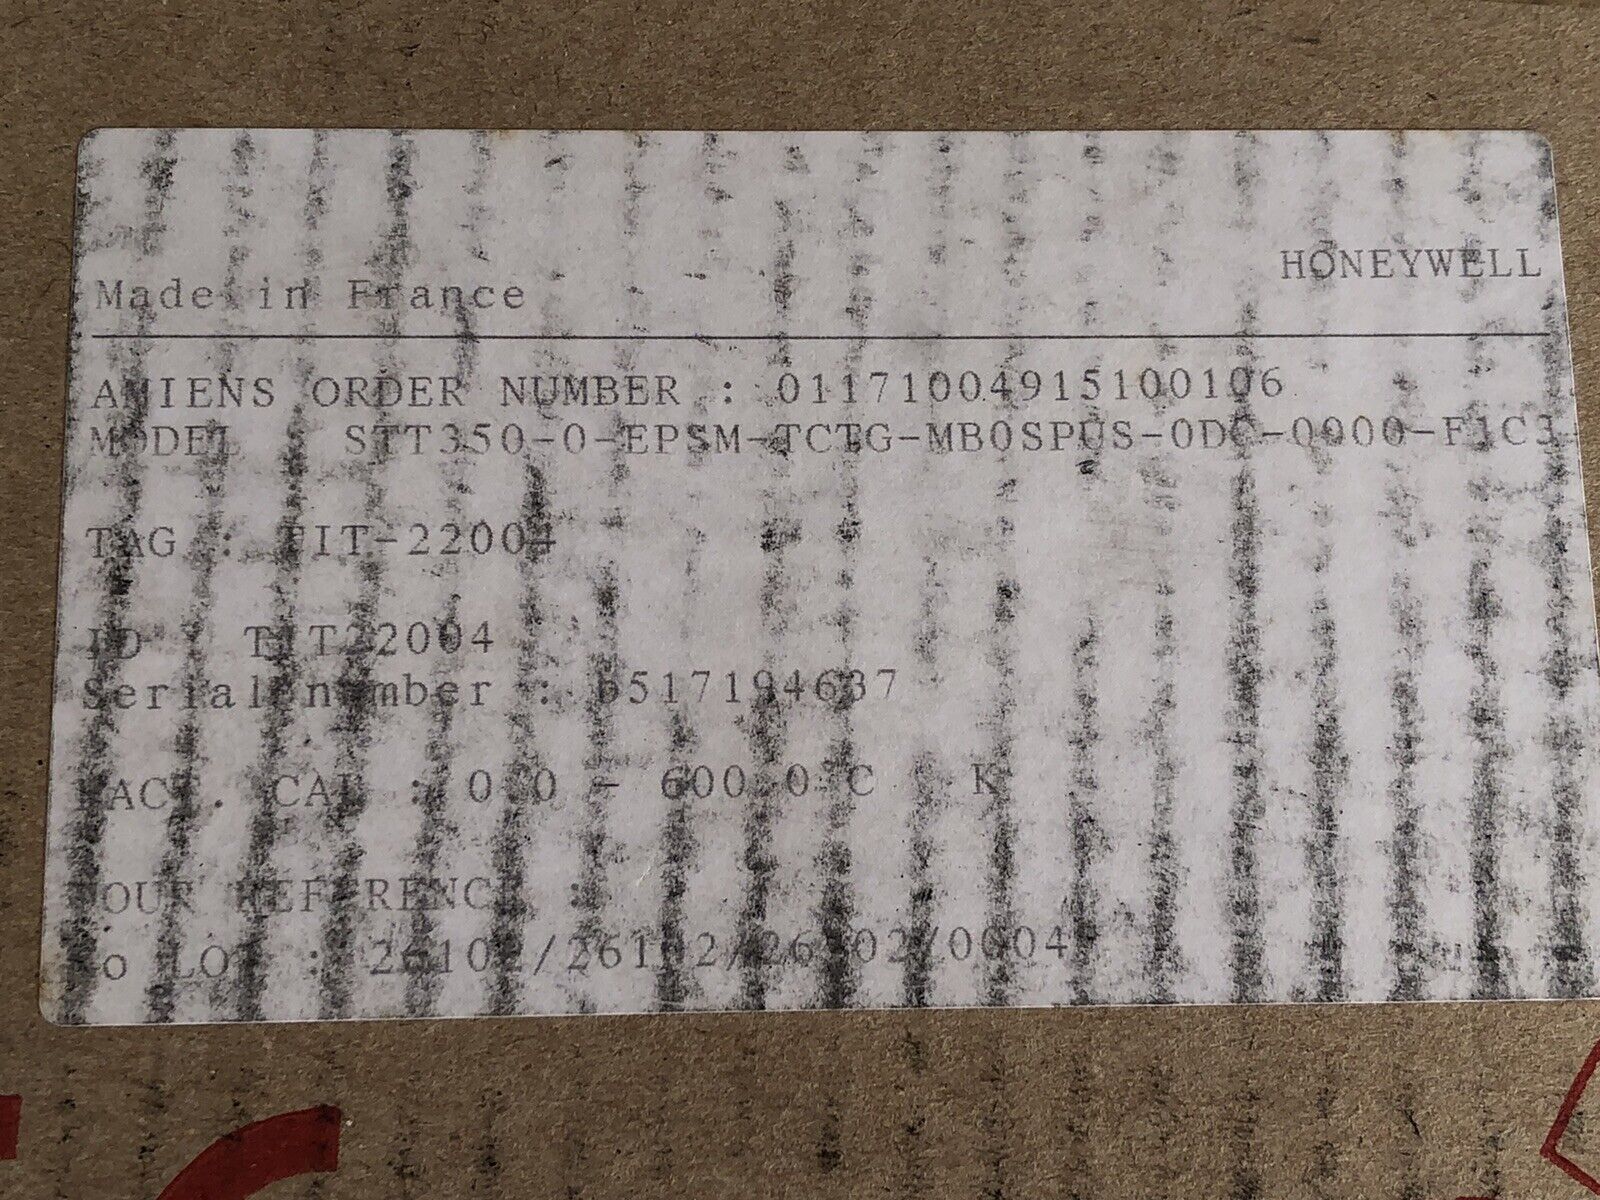 HONEYWELL
Made in France
AMIENS ORDER NUMBER : 01171004915100106
MODEL STT350-0-EPSM-TCTG-MB0SPUS-0DC-0000-F1C3
TAG : TIT-22004
ID : TIT22004
Serial number : b517194637
FACT. CAL : 0.0 - 600.0 C K
YOUR REFERENCE :
No LOT : 26102/26102/26102/0004